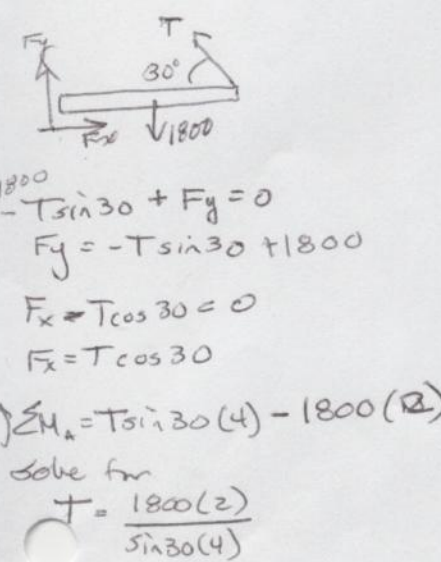 Fy
T
30°
Fx
1800
1800
- Tsin30 + Fy = 0
Fy = -Tsin30 +1800
Fx - Tcos30 = 0
Fx = Tcos30
) ΣM_A = Tsin30(4) - 1800(2)
solve for
T = 1800(2)
sin30(4)